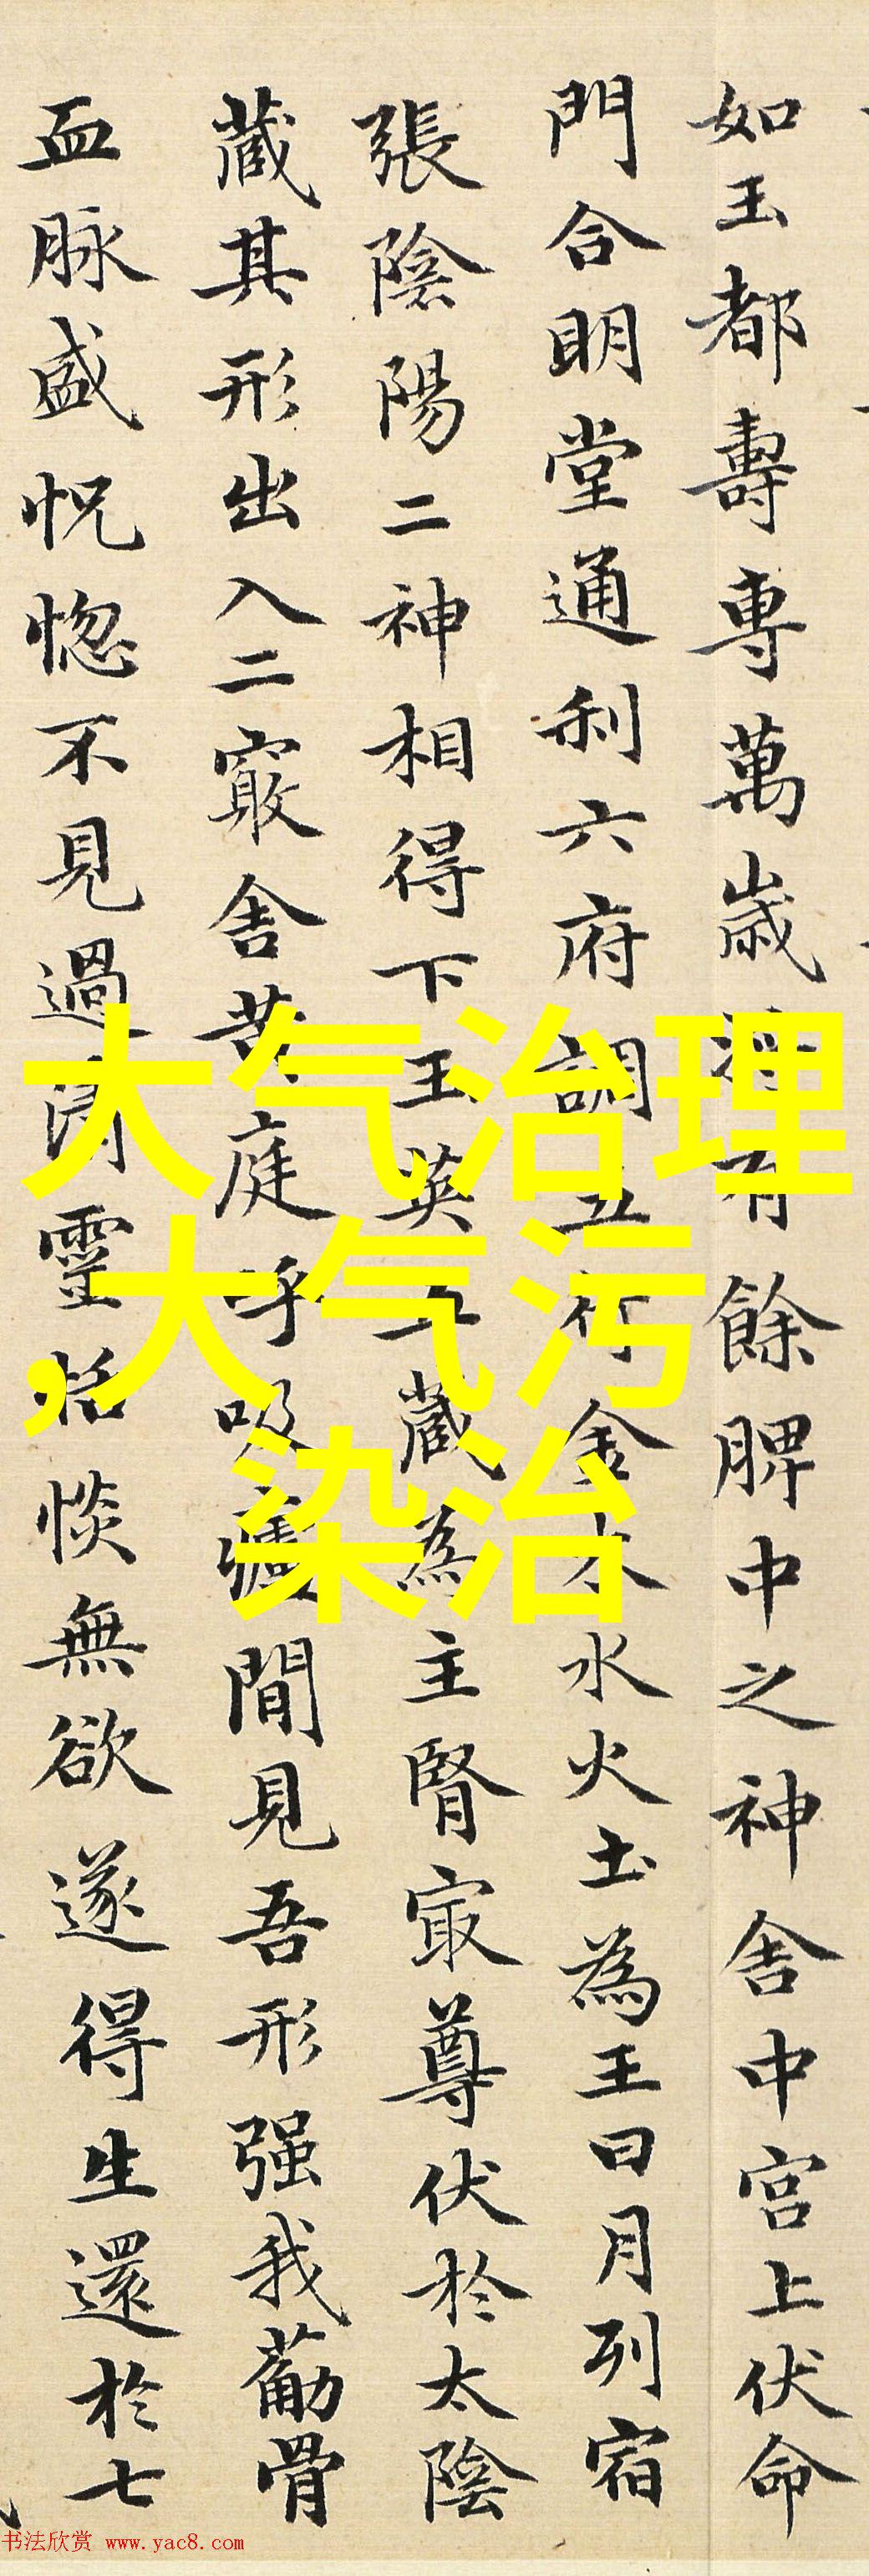 如玉都壽專萬歲將有餘脾中之神舍中宮上伏命
門合明堂通利六府調五行金木水火土為王日月列宿
張陰陽二神相得下玉英五藏為主腎㝡尊伏於太陰
藏其形出入二竅舍黃庭呼吸廬間見吾形强我葪骨
血脉盛怳惚不見過清靈恬惔無欲遂得生還於七
大气治理
,大气污
染治
书法欣赏 www.yac8.com